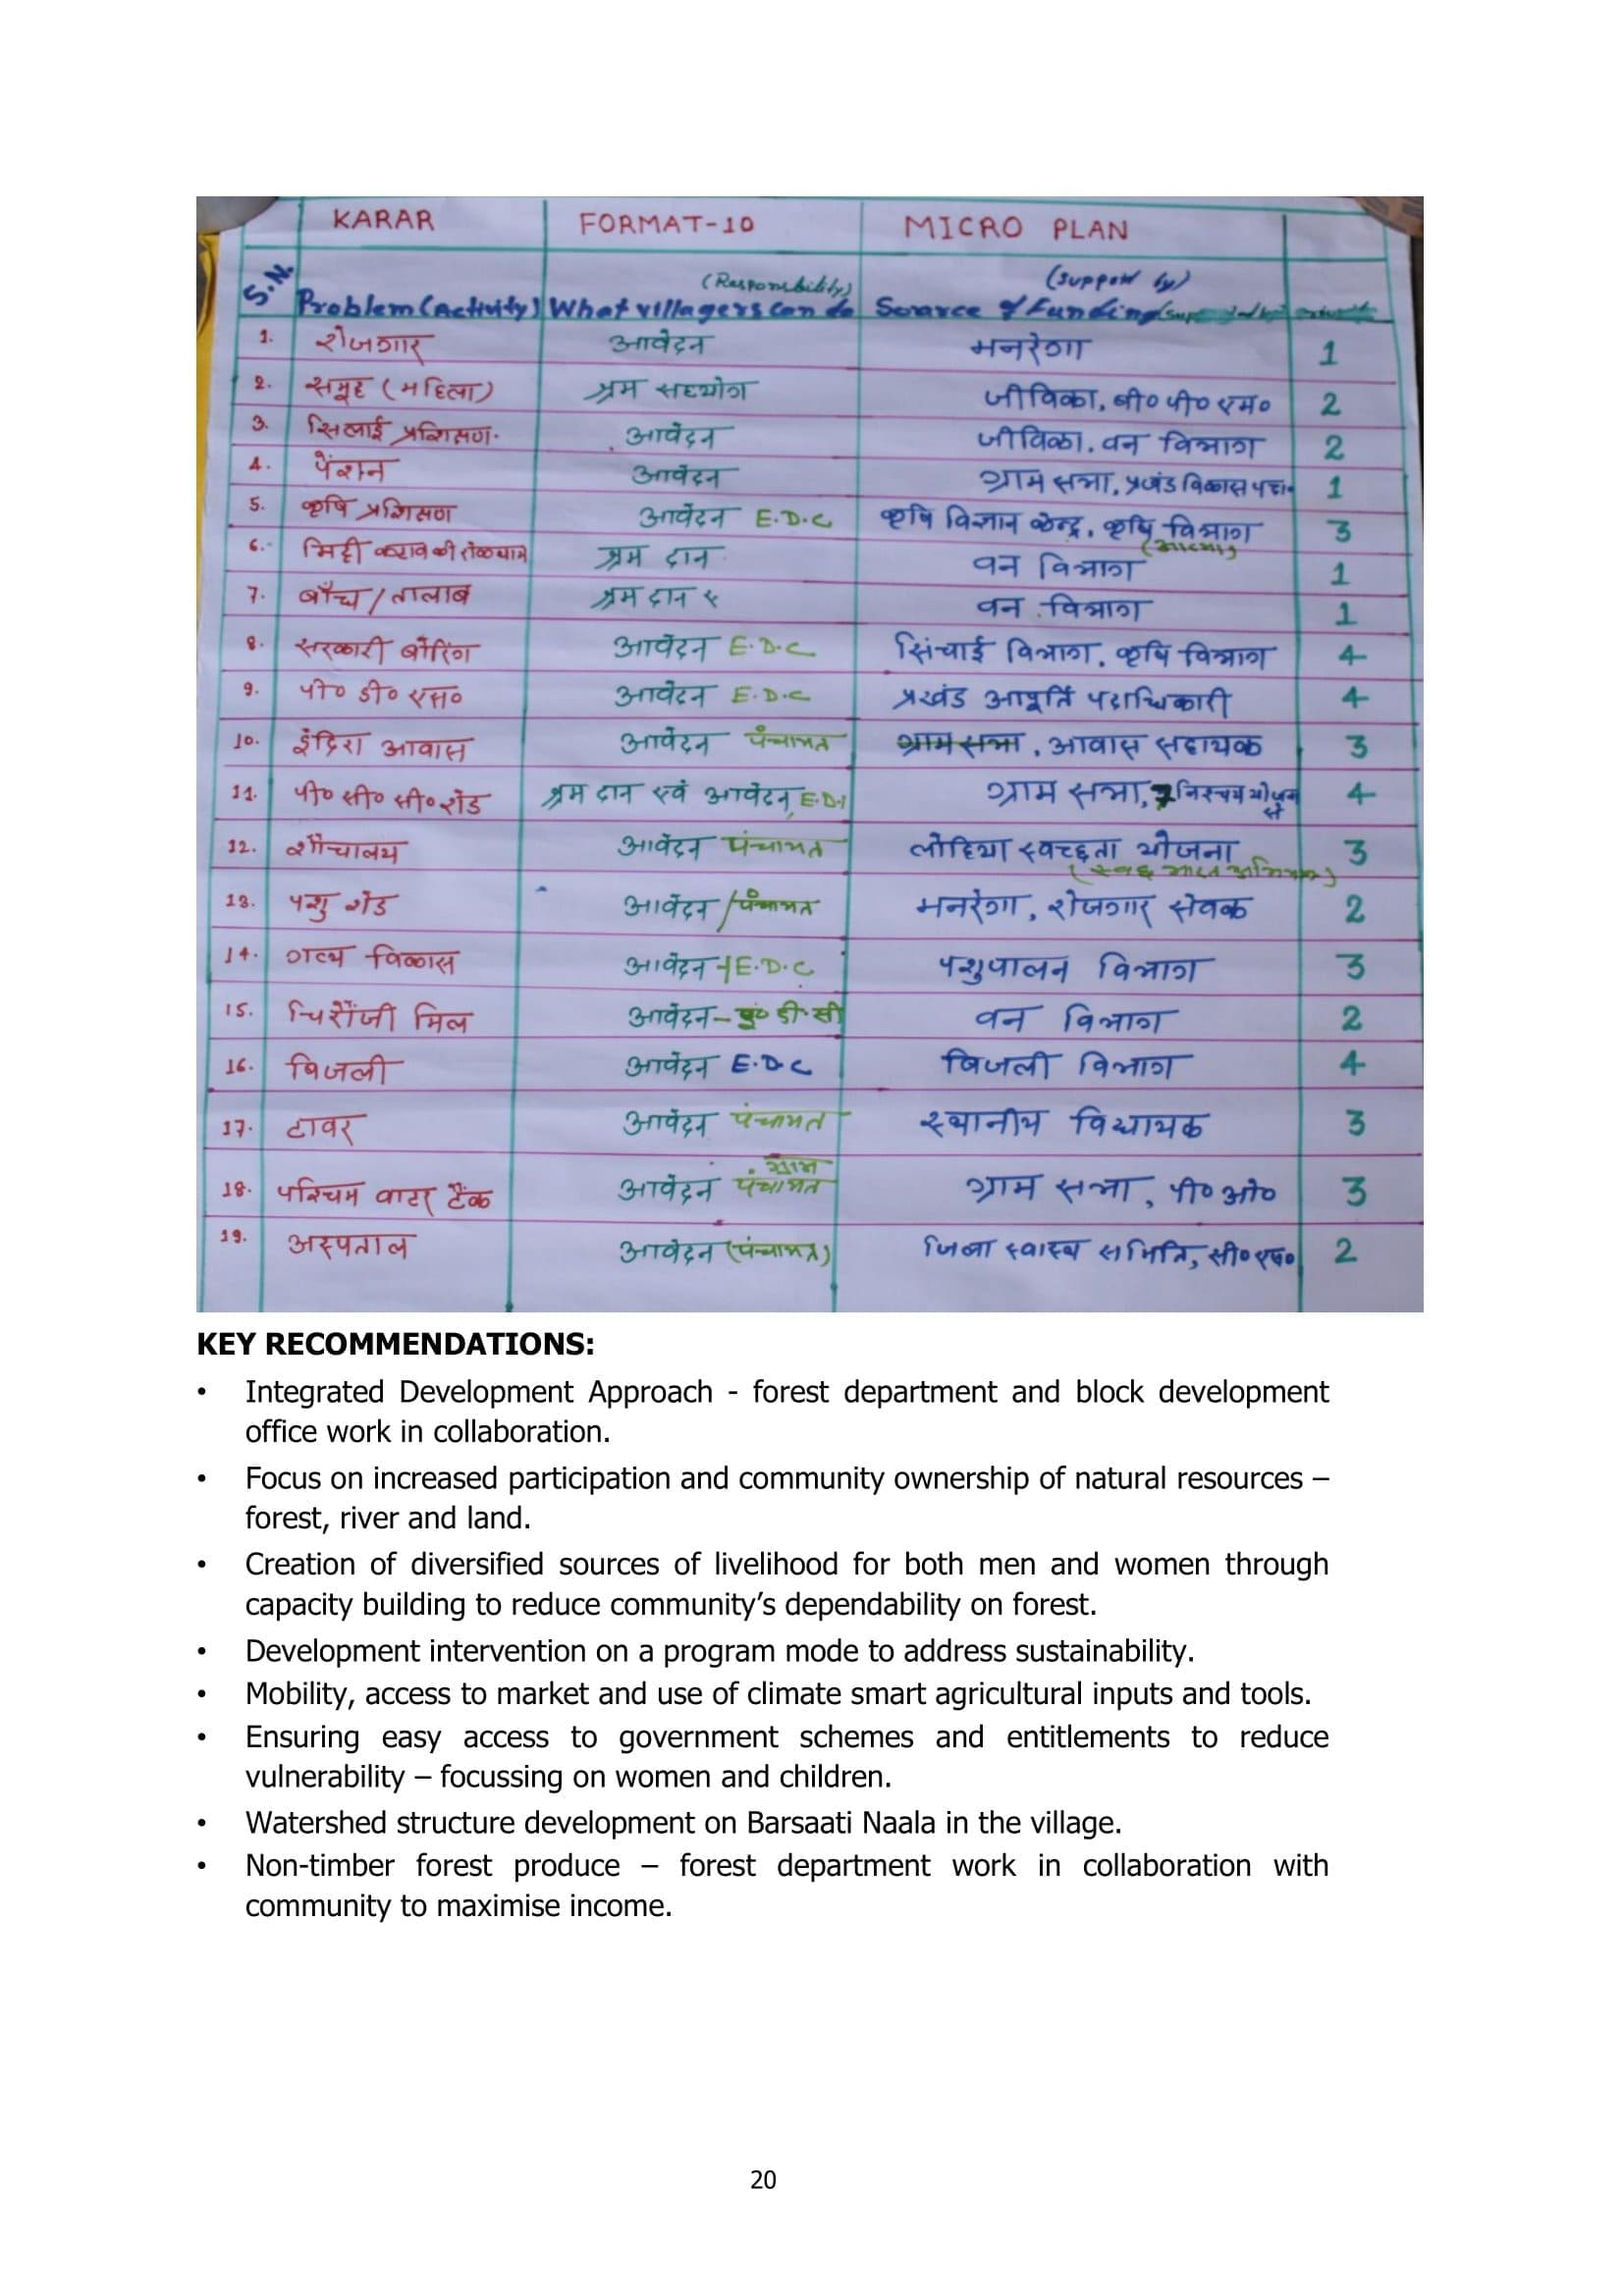 KARAR FORMAT-10 MICRO PLAN
(Responsibility) (support by)
S.N. Problem (Activity) What villagers can do Source of Funding
1. रोजगार आवेदन मनरेगा 1
2. समूह (महिला) श्रम सहयोग जीविका, बी० पी० एम० 2
3. सिलाई प्रशिक्षण आवेदन जीविका, वन विभाग 2
4. पेंशन आवेदन ग्राम सभा, प्रखंड विकास पदा० 1
5. कृषि प्रशिक्षण आवेदन E.D.C कृषि विज्ञान केन्द्र, कृषि विभाग 3
6. मिट्टी कटाव की रोकथाम श्रम दान वन विभाग 1
7. बाँध/तालाब श्रम दान वन विभाग 1
8. सरकारी बोरिंग आवेदन E.D.C सिंचाई विभाग, कृषि विभाग 4
9. पी० डी० एस० आवेदन E.D.C प्रखंड आपूर्ति पदाधिकारी 4
10. इंदिरा आवास आवेदन पंचायत ग्राम सभा, आवास सहायक 3
11. पी० सी० सी० रोड श्रम दान एवं आवेदन, ग्राम सभा, 7 निश्चय योजना से 4
12. शौचालय आवेदन पंचायत लोहिया स्वच्छता योजना 3
(स्वच्छ भारत अभियान)
13. पशु शेड आवेदन/पंचायत मनरेगा, रोजगार सेवक 2
14. गव्य विकास आवेदन/E.D.C पशुपालन विभाग 3
15. चिरौंजी मिल आवेदन- डी.सी वन विभाग 2
16. बिजली आवेदन E.D.C बिजली विभाग 4
17. टावर आवेदन पंचायत स्थानीय विधायक 3
18. पश्चिम वाटर टैंक आवेदन ग्राम पंचायत ग्राम सभा, पी० ओ० 3
19. अस्पताल आवेदन (पंचायत) जिला स्वास्थ्य समिति, सी० एस० 2
KEY RECOMMENDATIONS:
• Integrated Development Approach - forest department and block development
office work in collaboration.
• Focus on increased participation and community ownership of natural resources –
forest, river and land.
• Creation of diversified sources of livelihood for both men and women through
capacity building to reduce community’s dependability on forest.
• Development intervention on a program mode to address sustainability.
• Mobility, access to market and use of climate smart agricultural inputs and tools.
• Ensuring easy access to government schemes and entitlements to reduce
vulnerability – focussing on women and children.
• Watershed structure development on Barsaati Naala in the village.
• Non-timber forest produce – forest department work in collaboration with
community to maximise income.
20